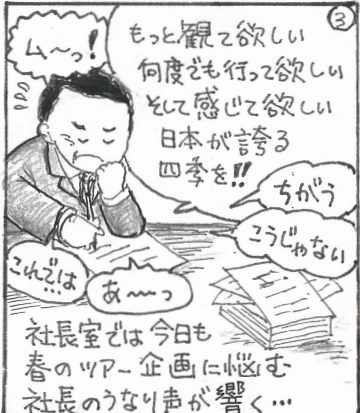 ③
ム〜っ!
もっと観て欲しい
何度でも行って欲しい
そして感じて欲しい
日本が誇る
四季を!!
ちがう
こうじゃない
これでは…
あ〜〜っ
社長室では今日も
春のツアー企画に悩む
社長のうなり声が響く…